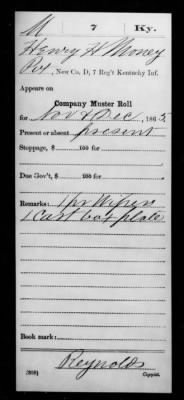 M 7 Ky.
Henry H Money
Pvt, New Co. D, 7 Reg't Kentucky Inf.
Appears on
Company Muster Roll
for Nov & Dec, 1865
Present or absent present
Stoppage, $ 100 for
Due Gov't, $ 100 for
Remarks: 1 pr Wipers
1 Cart box plate
Book mark:
Reynolds
(358) Copyist.